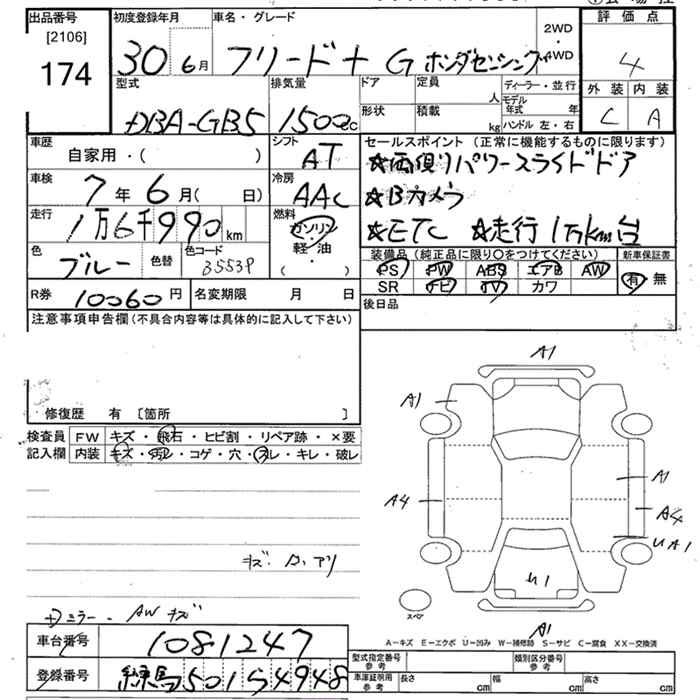 出品番号 [2106] 174
初度登録年月 30年 6月
車名・グレード フリード+ G ホンダセンシング
2WD
4WD
評価点 4
外装 C 内装 A
型式 DBA-GB5
排気量 1500cc
ドア
形状
定員 人
積載 kg
ディーラー・並行
モデル年式 年
ハンドル 左・右
車歴 自家用・( )
シフト AT
車検 7年 6月( 日)
冷房 AAC
走行 1万6千990km
燃料 ガソリン 軽・油 ( ・ )
色 ブルー 色替
色コード B553P
セールスポイント (正常に機能するものに限ります)
☆両側パワースライドドア
☆Bカメラ
☆ETC ☆走行1万km台
装備品 (純正品に限り○をつけてください)
PS PW ABS エアB AW
SR ナビ TV カワ
新車保証書 有・無
R券 10060円
名変期限 月 日
後日品
注意事項申告欄 (不具合内容等は具体的に記入して下さい)
修復歴 有 [箇所 ]
検査員記入欄
FW キズ・飛石・ヒビ割・リペア跡・×要
内装 キズ・汚レ・コゲ・穴・スレ・キレ・破レ
A1
A1
A1
A4
A4
UA1
U1
A1
スペア
A-キズ E-エクボ U-凹み W-補修跡 S-サビ C-腐食 XX-交換済
車台番号 1081247
登録番号 練馬501 5 4948
型式指定番号 参考
類別区分番号 参考
車庫証明用 参考
長さ cm
幅 cm
高さ cm